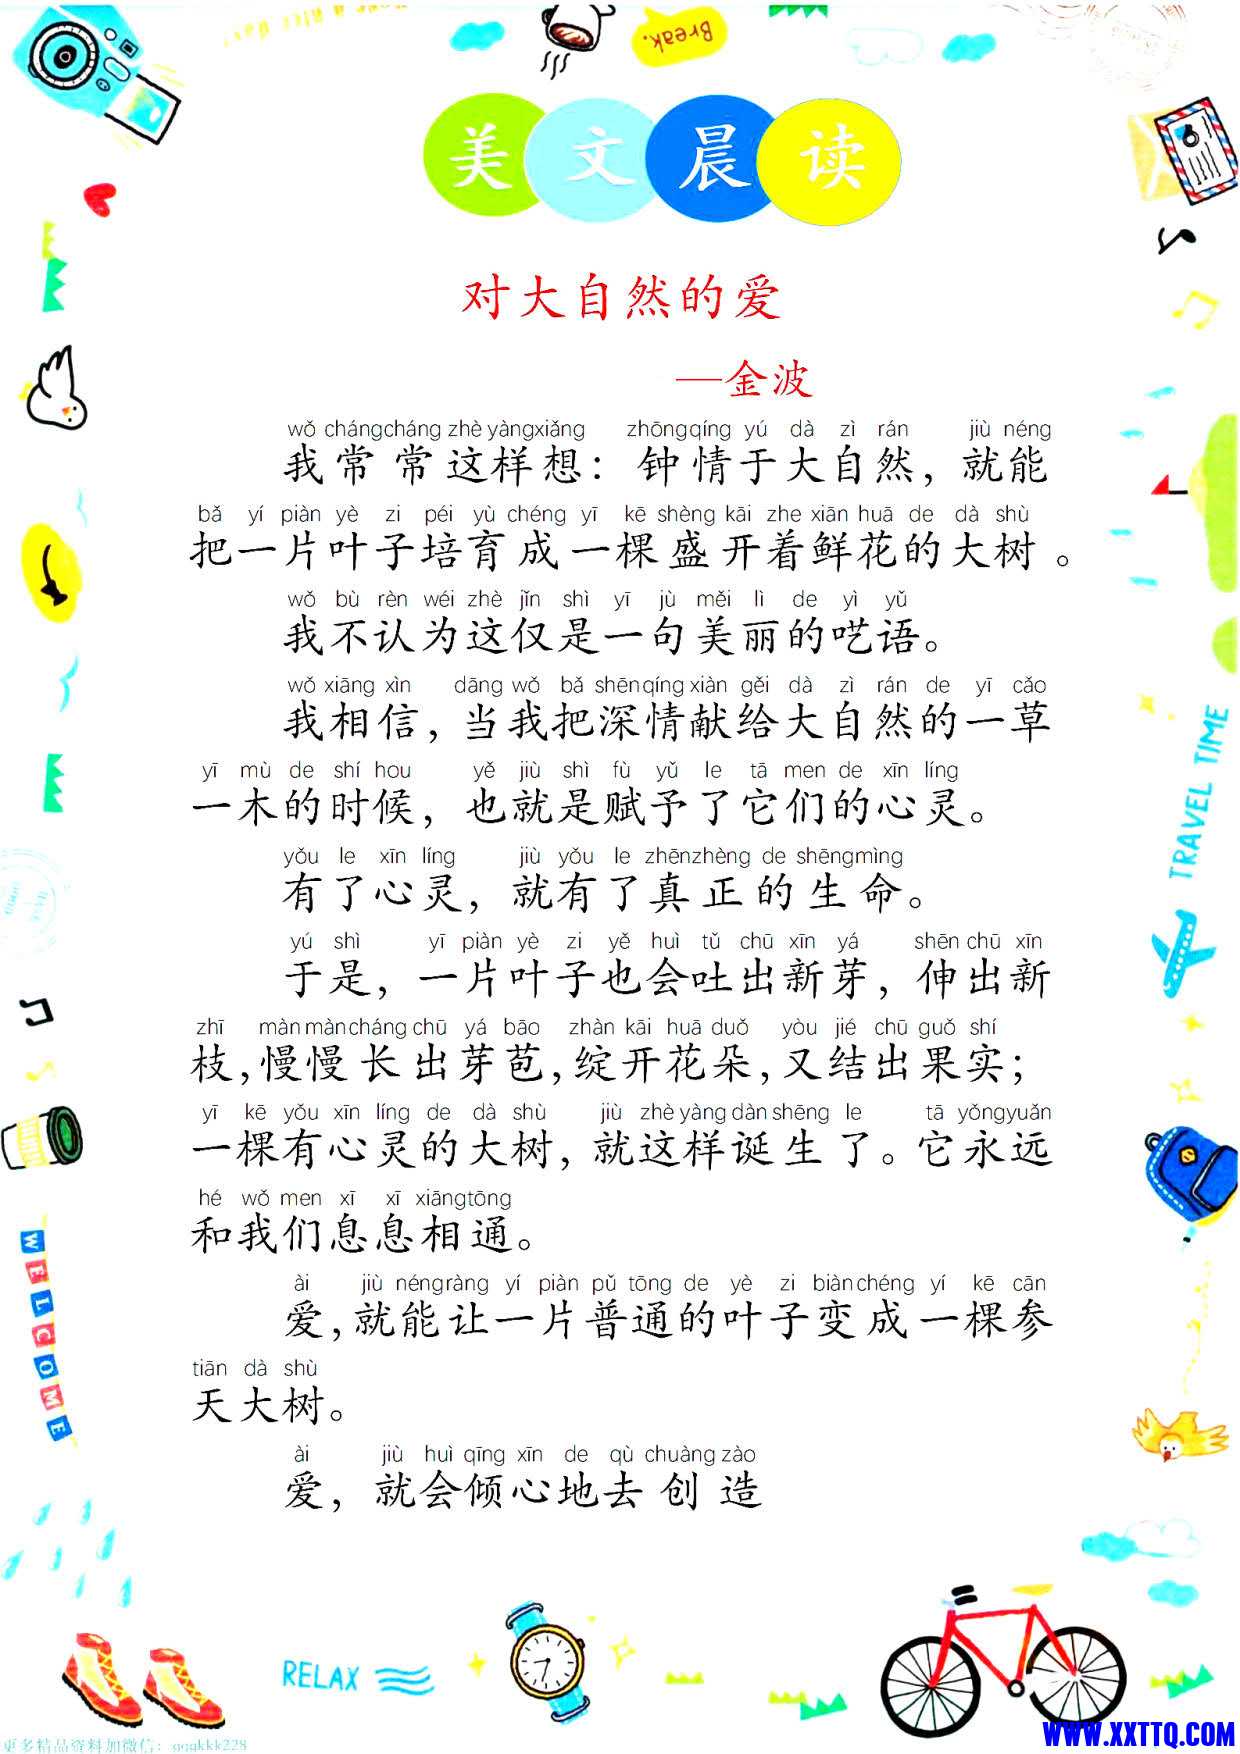 Break.
美文晨读
对大自然的爱
—金波
wǒ chángcháng zhè yàngxiǎng zhōngqíng yú dà zì rán jiù néng
我常常这样想：钟情于大自然，就能
bǎ yí piàn yè zi péi yù chéng yī kē shèng kāi zhe xiān huā de dà shù
把一片叶子培育成一棵盛开着鲜花的大树。
wǒ bù rèn wéi zhè jǐn shì yī jù měi lì de yì yǔ
我不认为这仅是一句美丽的呓语。
wǒ xiāng xìn dāng wǒ bǎ shēnqíng xiàn gěi dà zì rán de yī cǎo
我相信，当我把深情献给大自然的一草
yī mù de shí hou yě jiù shì fù yǔ le tā men de xīn líng
一木的时候，也就是赋予了它们的心灵。
yǒu le xīn líng jiù yǒu le zhēnzhèng de shēngmìng
有了心灵，就有了真正的生命。
yú shì yī piàn yè zi yě huì tǔ chū xīn yá shēn chū xīn
于是，一片叶子也会吐出新芽，伸出新
zhī màn màn cháng chū yá bāo zhàn kāi huā duǒ yòu jié chū guǒ shí
枝，慢慢长出芽苞，绽开花朵，又结出果实；
yī kē yǒu xīn líng de dà shù jiù zhè yàng dàn shēng le tā yǒngyuǎn
一棵有心灵的大树，就这样诞生了。它永远
hé wǒ men xī xī xiāngtōng
和我们息息相通。
ài jiù néngràng yí piàn pǔ tōng de yè zi biàn chéng yí kē cān
爱，就能让一片普通的叶子变成一棵参
tiān dà shù
天大树。
ài jiù huì qīng xīn de qù chuàng zào
爱，就会倾心地去创造
TRAVEL TIME
WELCOME
RELAX
更多精品资料加微信：gggkkk228
WWW.XXTTQ.COM